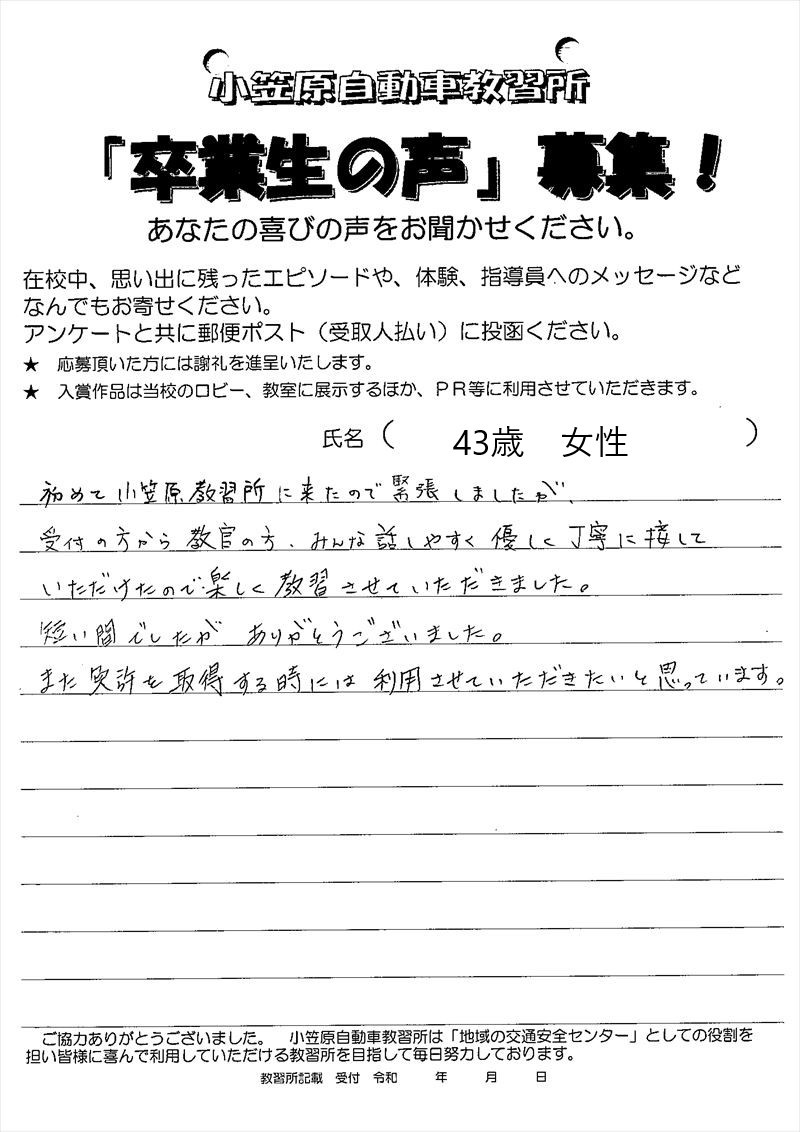 小笠原自動車教習所
「卒業生の声」募集！
あなたの喜びの声をお聞かせください。
在校中、思い出に残ったエピソードや、体験、指導員へのメッセージなど
なんでもお寄せください。
アンケートと共に郵便ポスト（受取人払い）に投函ください。
★　応募頂いた方には謝礼を進呈いたします。
★　入賞作品は当校のロビー、教室に展示するほか、ＰＲ等に利用させていただきます。
氏名（　43歳　女性　）
初めて小笠原教習所に来たので緊張しましたが、
受付の方から教官の方、みんな話しやすく優しく丁寧に接して
いただけたので楽しく教習させていただきました。
短い間でしたがありがとうございました。
また免許を取得する時には利用させていただきたいと思っています。
ご協力ありがとうございました。　小笠原自動車教習所は「地域の交通安全センター」としての役割を
担い皆様に喜んで利用していただける教習所を目指して毎日努力しております。
教習所記載　受付　令和　　年　　月　　日